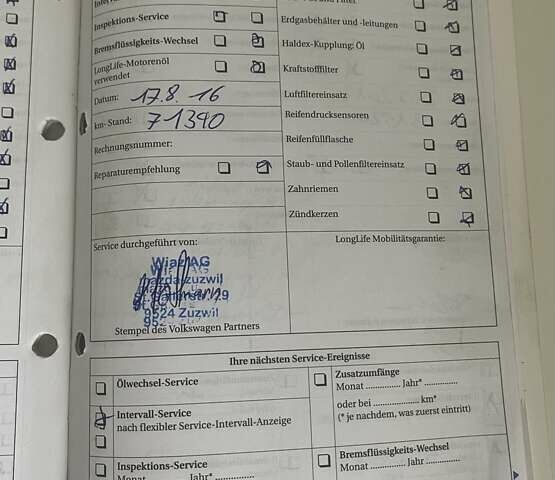 Inspektions-Service
Bremsflüssigkeits-Wechsel
LongLife-Motorenöl
verwendet
Datum: 17.8.16
km-Stand: 71390
Rechnungsnummer:
Reparaturempfehlung
Erdgasbehälter und -leitungen
Haldex-Kupplung: Öl
Kraftstofffilter
Luftfiltereinsatz
Reifendrucksensoren
Reifenfüllflasche
Staub- und Pollenfiltereinsatz
Zahnriemen
Zündkerzen
Service durchgeführt von:
LongLife Mobilitätsgarantie:
AG
zuzwil
9524 Zuzwil
Stempel des Volkswagen Partners
Ihre nächsten Service-Ereignisse
Ölwechsel-Service
Intervall-Service
nach flexibler Service-Intervall-Anzeige
Inspektions-Service
Monat .............. Jahr* ..............
Zusatzumfänge
Monat .............. Jahr* ..............
oder bei .................... km*
(* je nachdem, was zuerst eintritt)
Bremsflüssigkeits-Wechsel
Monat .............. Jahr ..............